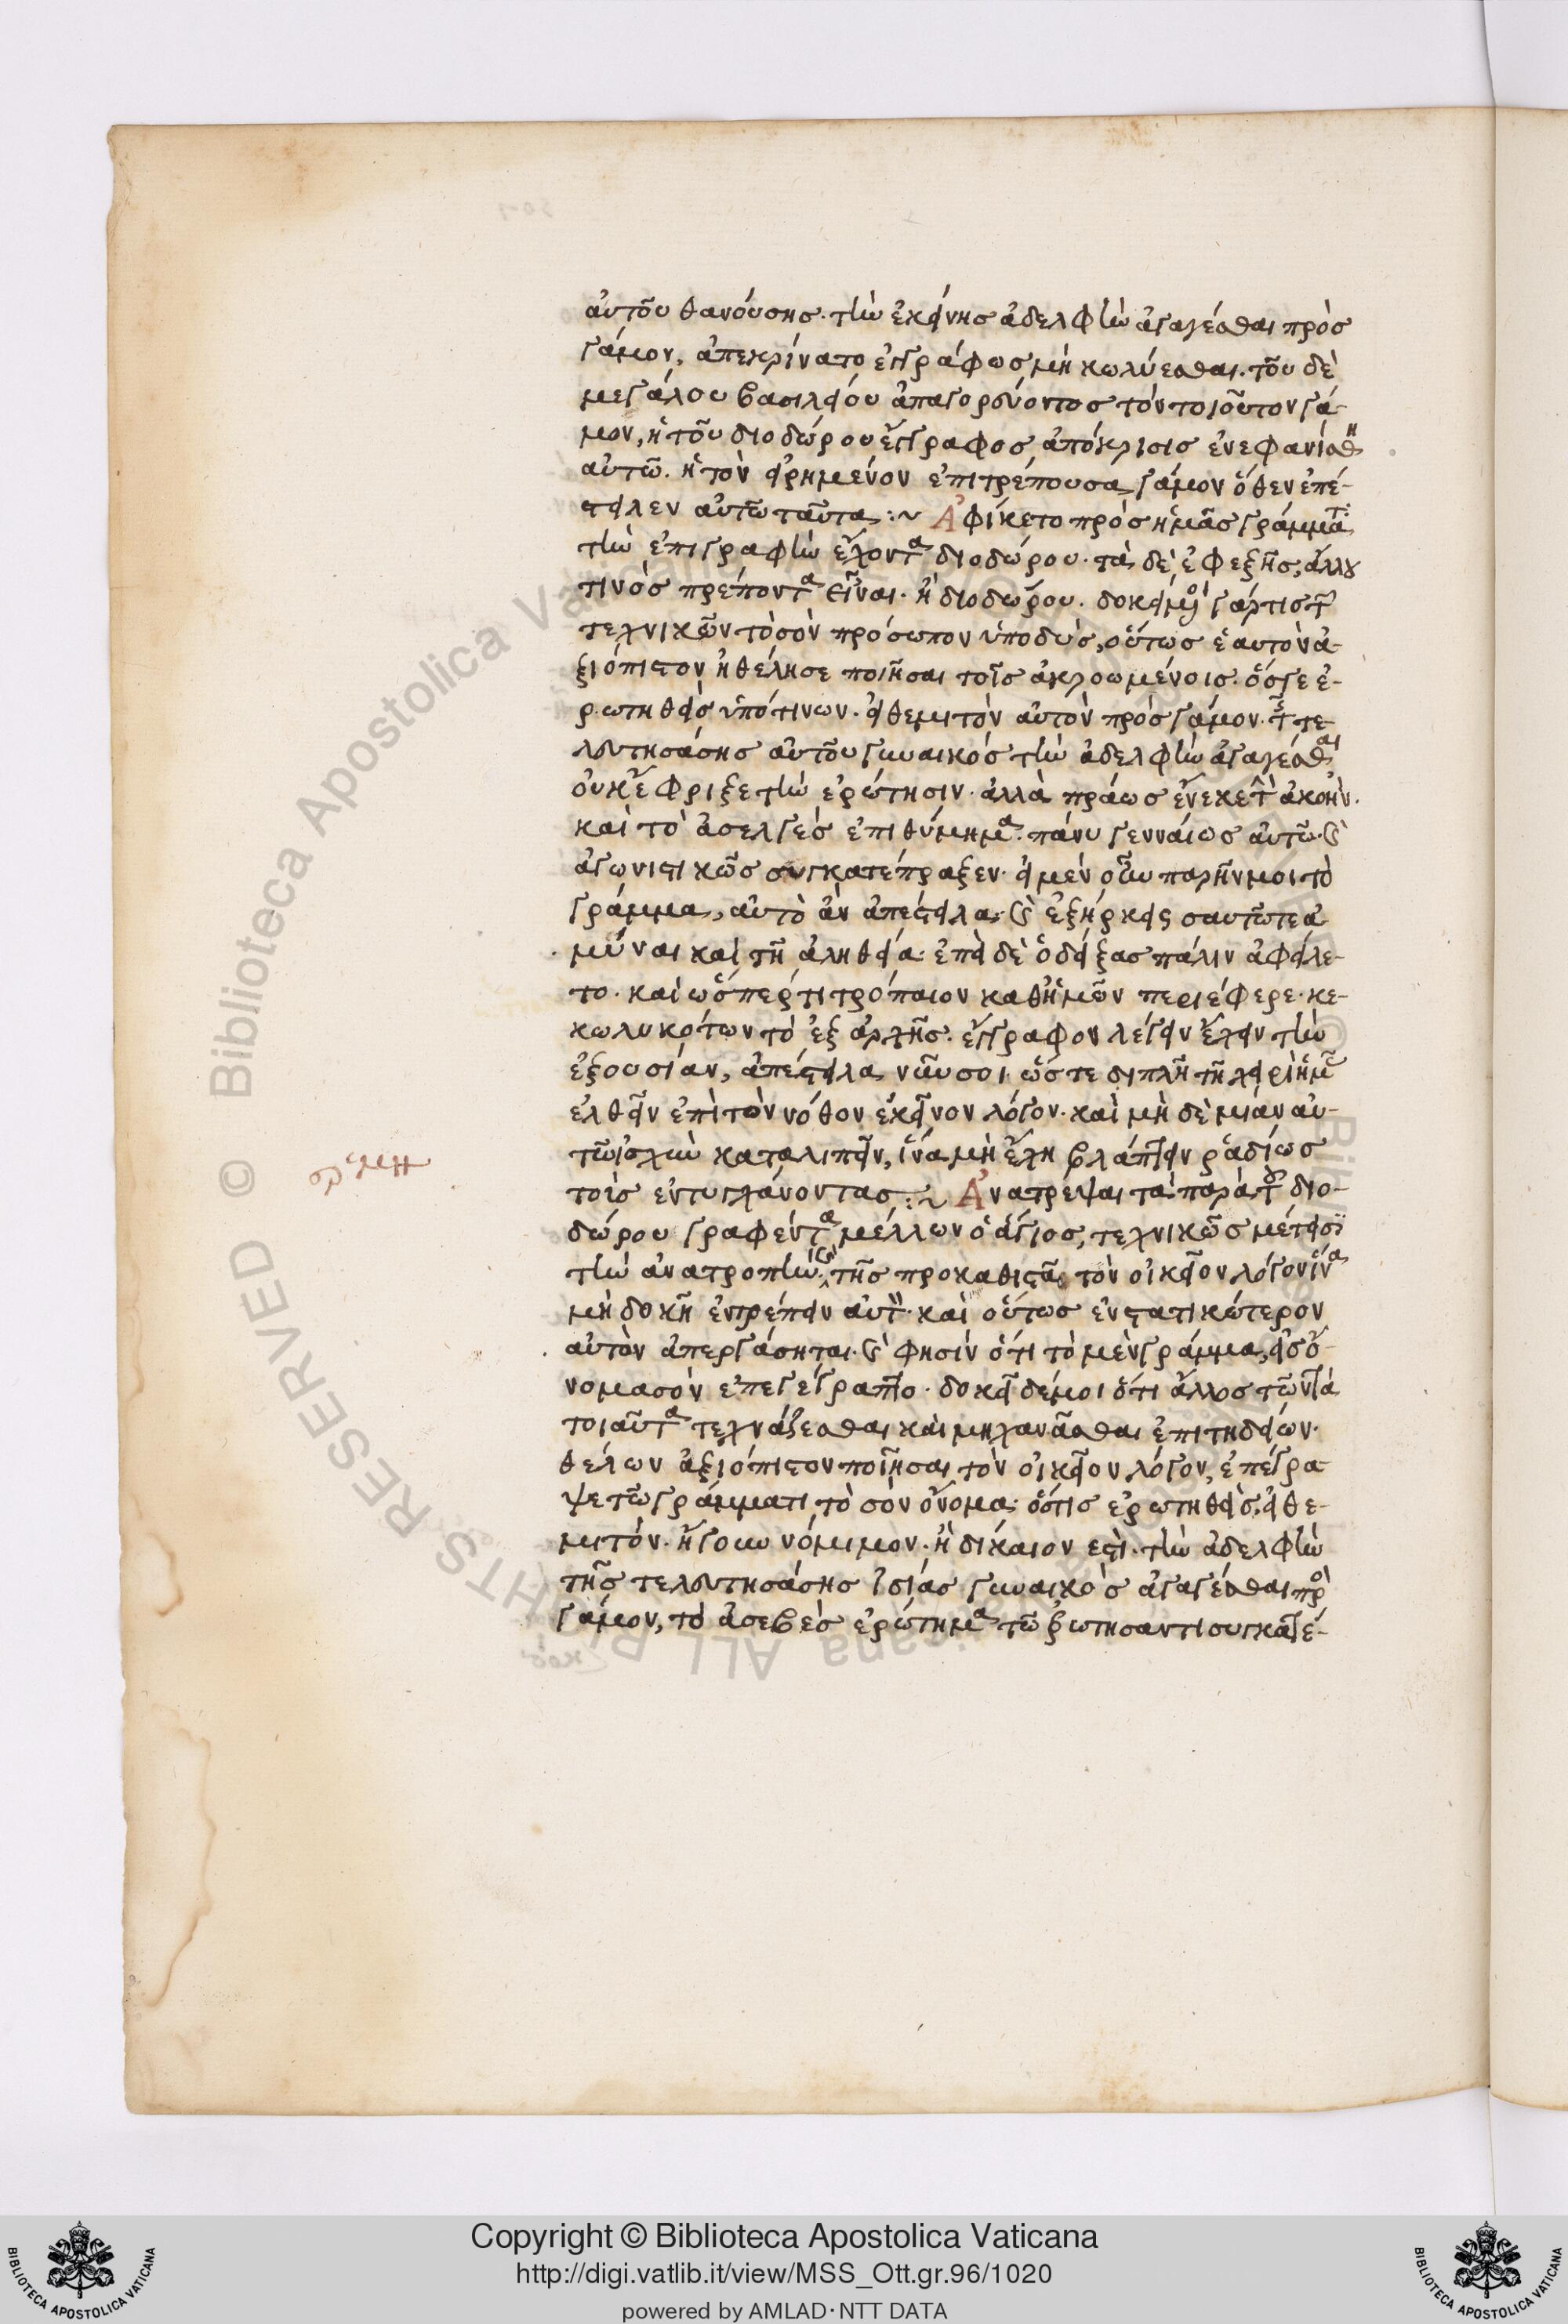 αὐτοῦ θανούσης. τὴν ἐκείνης ἀδελφὴν ἀγαγέσθαι πρὸς
γάμον, ἀπεκρίνατο ἐγγράφως μὴ κωλύεσθαι. τοῦ δὲ
μεγάλου βασιλείου ἀπαγορεύοντος τὸν τοιοῦτον γά-
μον, ἡ τοῦ διοδώρου ἔγγραφος ἀπόκρισις ἐνεφανίσθη
αὐτῶ. ἡ τὸν εἰρημένον ἐπιτρέπουσα γάμον ὅθεν ἐπέ-
στειλεν αὐτῶ ταῦτα :~ Ἀφίκετο πρὸς ἡμᾶς γράμματα
τὴν ἐπιγραφὴν ἔχοντα διοδώρου. τὰ δὲ ἐφεξῆς, ἄλλου
τινὸς πρέποντα εἶναι. ἢ διοδώρου. δοκεῖ μοι γάρ τις τῶν
τεχνικῶν τὸ σὸν πρόσωπον ὑποδὺς, οὕτως ἑαυτὸν ἀ-
ξιόπιστον ἠθέλησε ποιῆσαι τοῖς ἀκροωμένοις. ὅς γε ἐ-
ρωτηθεὶς ὑπό τινων. εἰ θεμιτὸν αὐτὸν πρὸς γάμον. τῆς τε-
λευτησάσης αὐτοῦ γυναικός τὴν ἀδελφὴν ἀγαγέσθαι
οὐκ ἔφριξε τὴν ἐρώτησιν. ἀλλὰ πράως ἤνεγκε τὴν ἀκοήν.
καὶ τὸ ἀσελγὲς ἐπιθύμημα. πάνυ γενναίως αὐτῶ. καὶ
ἀγωνιστικῶς συγκατέπραξεν. εἰ μὲν οὖν παρῆν μοι τὸ
γράμμα, αὐτὸ ἂν ἀπέστειλα. καὶ ἐξήρκεις σαυτῶ τε ἀ
μῦναι καὶ τῆ ἀληθεία. ἐπεὶ δὲ ὁ δείξας πάλιν ἀφείλε-
το. καὶ ὥσπερ τι τρόπαιον καθ' ἡμῶν περιέφερε. κε-
κωλυκότων τὸ ἐξ ἀρχῆς. ἔγγραφον λέγειν ἔχειν τὴν
ἐξουσίαν, ἀπέστειλα νῦν σοι ὥστε διπλῆ τῆ χειρὶ ἡμᾶς
ἐλθεῖν ἐπὶ τὸν νόθον ἐκεῖνον λόγον. καὶ μὴ δὲ μίαν αὐ-
τῶ ἰσχὺν καταλιπεῖν, ἵνα μὴ ἔχη βλάπτειν ῥαδίως
τοὺς ἐντυγχάνοντας :~ Ἀνατρέψαι τὰ παρὰ τοῦ διο-
δώρου γραφέντα μέλλων ὁ ἅγιος, τεχνικῶς μέτεισι
τὴν ἀνατροπὴν. καὶ τῆς προκαθιστᾶ τὸν οἰκεῖον λόγον ἵνα
μὴ δοκῆ ἐντρέπειν αὐτὸν. καὶ οὕτως ἐνστατικώτερον
αὐτὸν ἀπεργάσηται. καὶ φησὶν ὅτι τὸ μὲν γράμμα, εἰς ὄ-
νομα σὸν ἐπεγέγραπτο. δοκεῖ δέ μοι ὅτι ἄλλος τῶν τὰ
τοιαῦτα τεχνάζεσθαι καὶ μηχανᾶσθαι ἐπιτηδείων.
θέλων ἀξιόπιστον ποιῆσαι τὸν οἰκεῖον λόγον, ἐπέγρα
ψε τῶ γράμματι τὸ σὸν ὄνομα. ὅστις ἐρωτηθεὶς, εἰ θε-
μιτόν. ἤγουν νόμιμον. ἢ δίκαιον ἐστὶ. τὴν ἀδελφὴν
τῆς τελευτησάσης ἰδίας γυναικὸς ἀγαγέσθαι πρὸς
γάμον, τὸ ἀσεβὲς ἐρώτημα τῶ ἐρωτήσαντι συγκατέ-